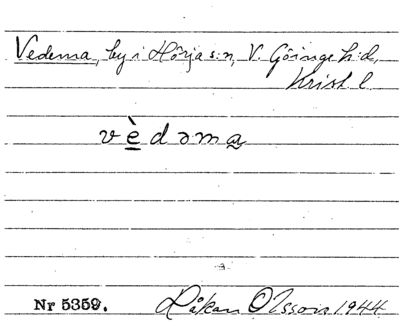 Vedema, by i Hörja s:n, V. Göinge h:d,
Krist l
vè̱dəma̰
Nr 5359. Håkan Olsson 1944